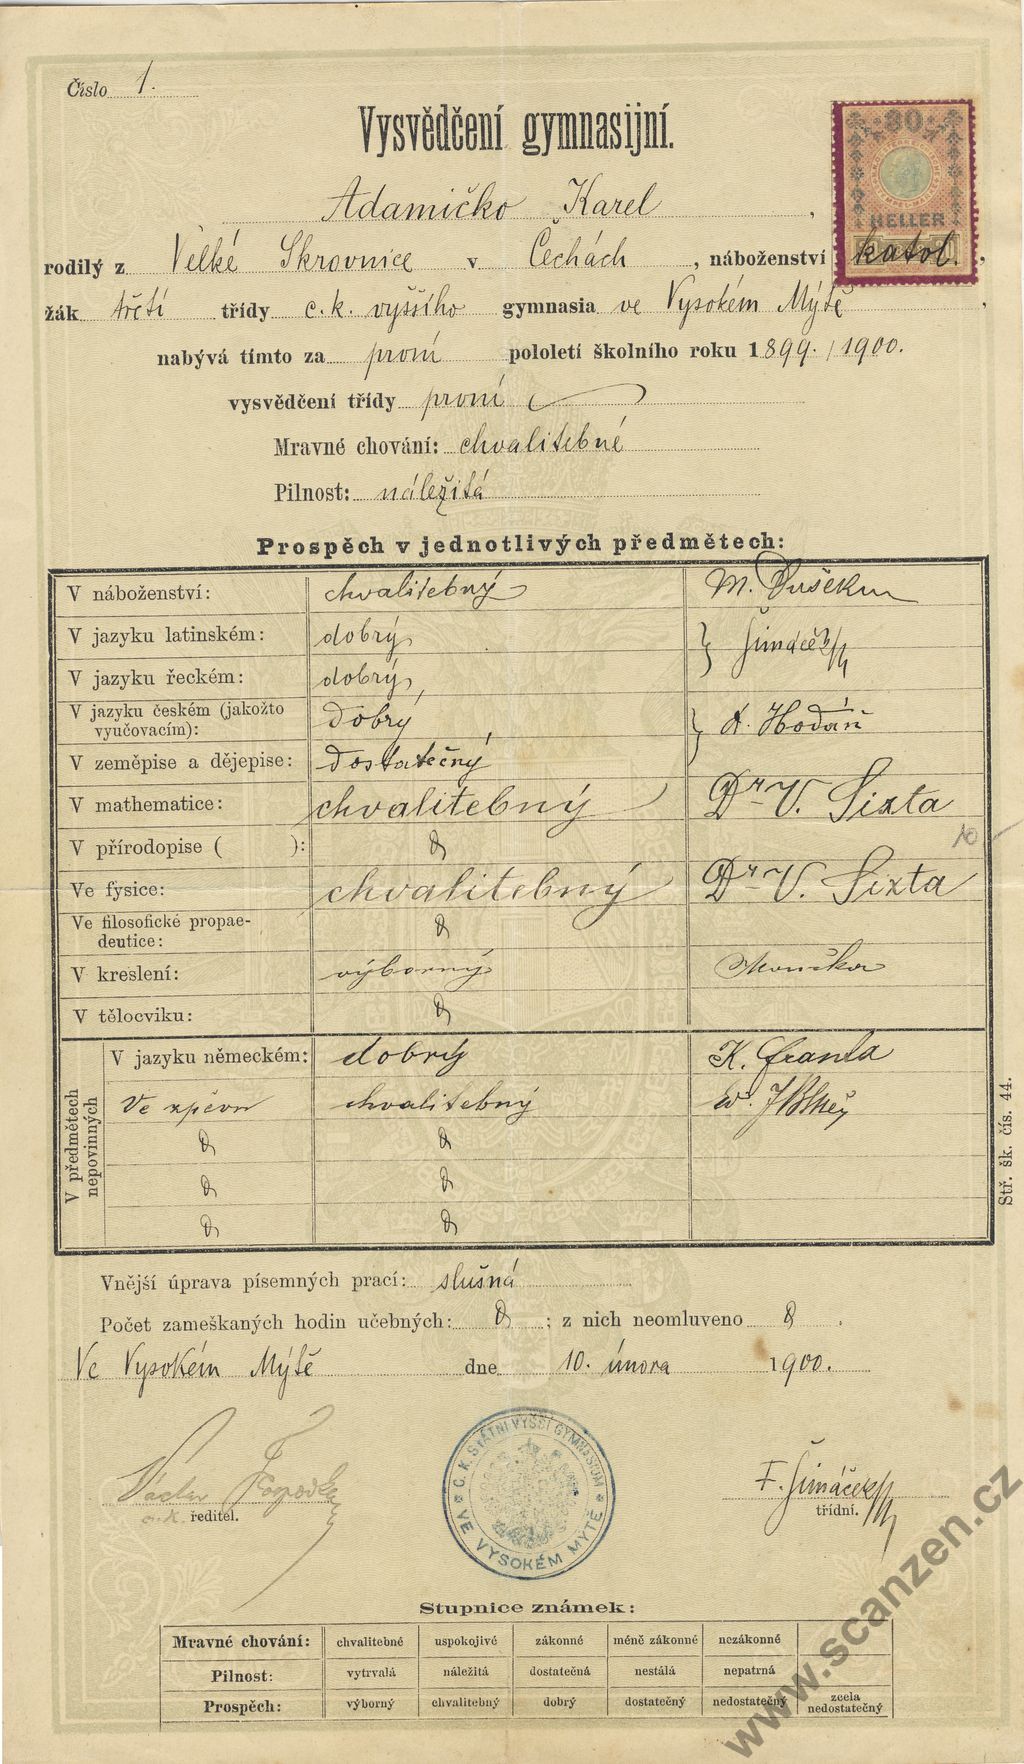 Číslo 1.
Vysvědčení gymnasijní.
80
HELLER
Adamičko Karel,
rodilý z Velké Skrovnice v Čechách, náboženství katol.,
žák třetí třídy c. k. vyššího gymnasia ve Vysokém Mýtě,
nabývá tímto za první pololetí školního roku 1899./1900.
vysvědčení třídy první
Mravné chování: chvalitebné
Pilnost: náležitá
Prospěch v jednotlivých předmětech:
V náboženství: chvalitebný M. Dušek
V jazyku latinském: dobrý } Šimáček
V jazyku řeckém: dobrý,
V jazyku českém (jakožto vyučovacím): dobrý } A. Hodáň
V zeměpise a dějepise: dostatečný
V mathematice: chvalitebný Dr. V. Sixta
V přírodopise ( ):
10
Ve fysice: chvalitebný Dr. V. Sixta
Ve filosofické propae-
deutice:
V kreslení: výborný
V tělocviku:
V předmětech nepovinných
V jazyku německém: dobrý K. Franta
Ve zpěvu chvalitebný
Stř. šk. čís. 44.
Vnější úprava písemných prací: slušná
Počet zameškaných hodin učebných: ; z nich neomluveno .
Ve Vysokém Mýtě dne 10. února 1900.
Václav
c. k. ředitel.
C. K. STÁTNÍ VYŠŠÍ GYMNASIUM
VE VYSOKÉM MÝTĚ
F. Šimáček
třídní.
Stupnice známek:
Mravné chování: chvalitebné uspokojivé zákonné méně zákonné nezákonné
Pilnost: vytrvalá náležitá dostatečná nestálá nepatrná
Prospěch: výborný chvalitebný dobrý dostatečný nedostatečný zcela nedostatečný
www.scanzen.cz